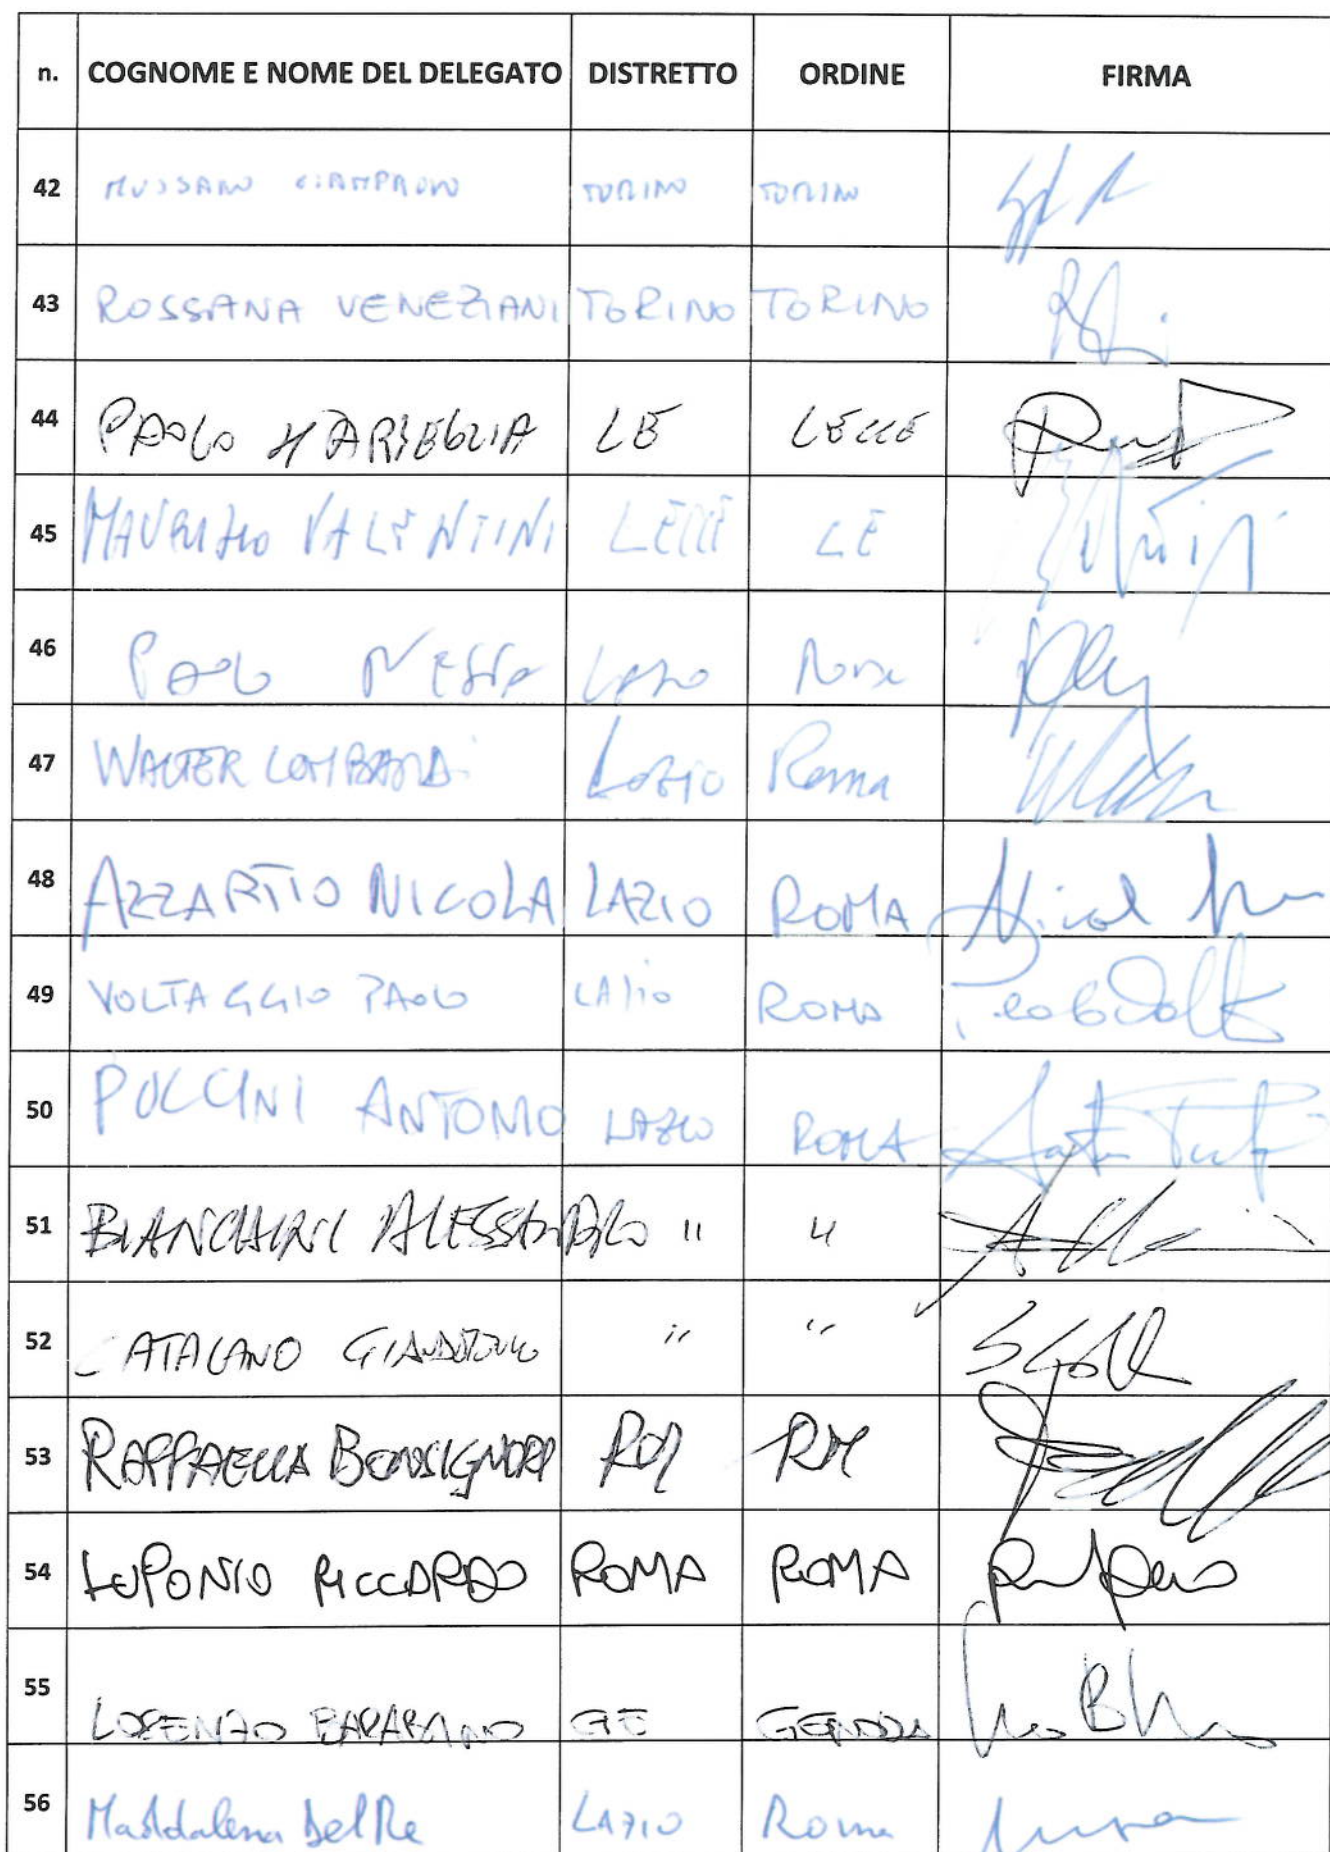 n. COGNOME E NOME DEL DELEGATO DISTRETTO ORDINE FIRMA
42 MUSSANO GIAMPAOLO TORINO TORINO
43 ROSSANA VENEZIANI TORINO TORINO
44 PAOLO LE LECCE
45 MAURIZIO VALENTINI LECCE LE
46 PAOLO NESTA LAZIO Roma
47 WALTER LOMBARDI LAZIO Roma
48 AZZARITO NICOLA LAZIO ROMA
49 VOLTAGGIO PAOLO LAZIO ROMA
50 PUCCINI ANTONIO LAZIO ROMA
51 BIANCHINI ALESSANDRO " "
52 CATALANO " "
53 RAFFAELLA BONSIGNORI RM RM
54 LUPONIO RICCARDO ROMA ROMA
55 LORENZO BARABINO GE GENOVA
56 Maddalena Del Re LAZIO Roma